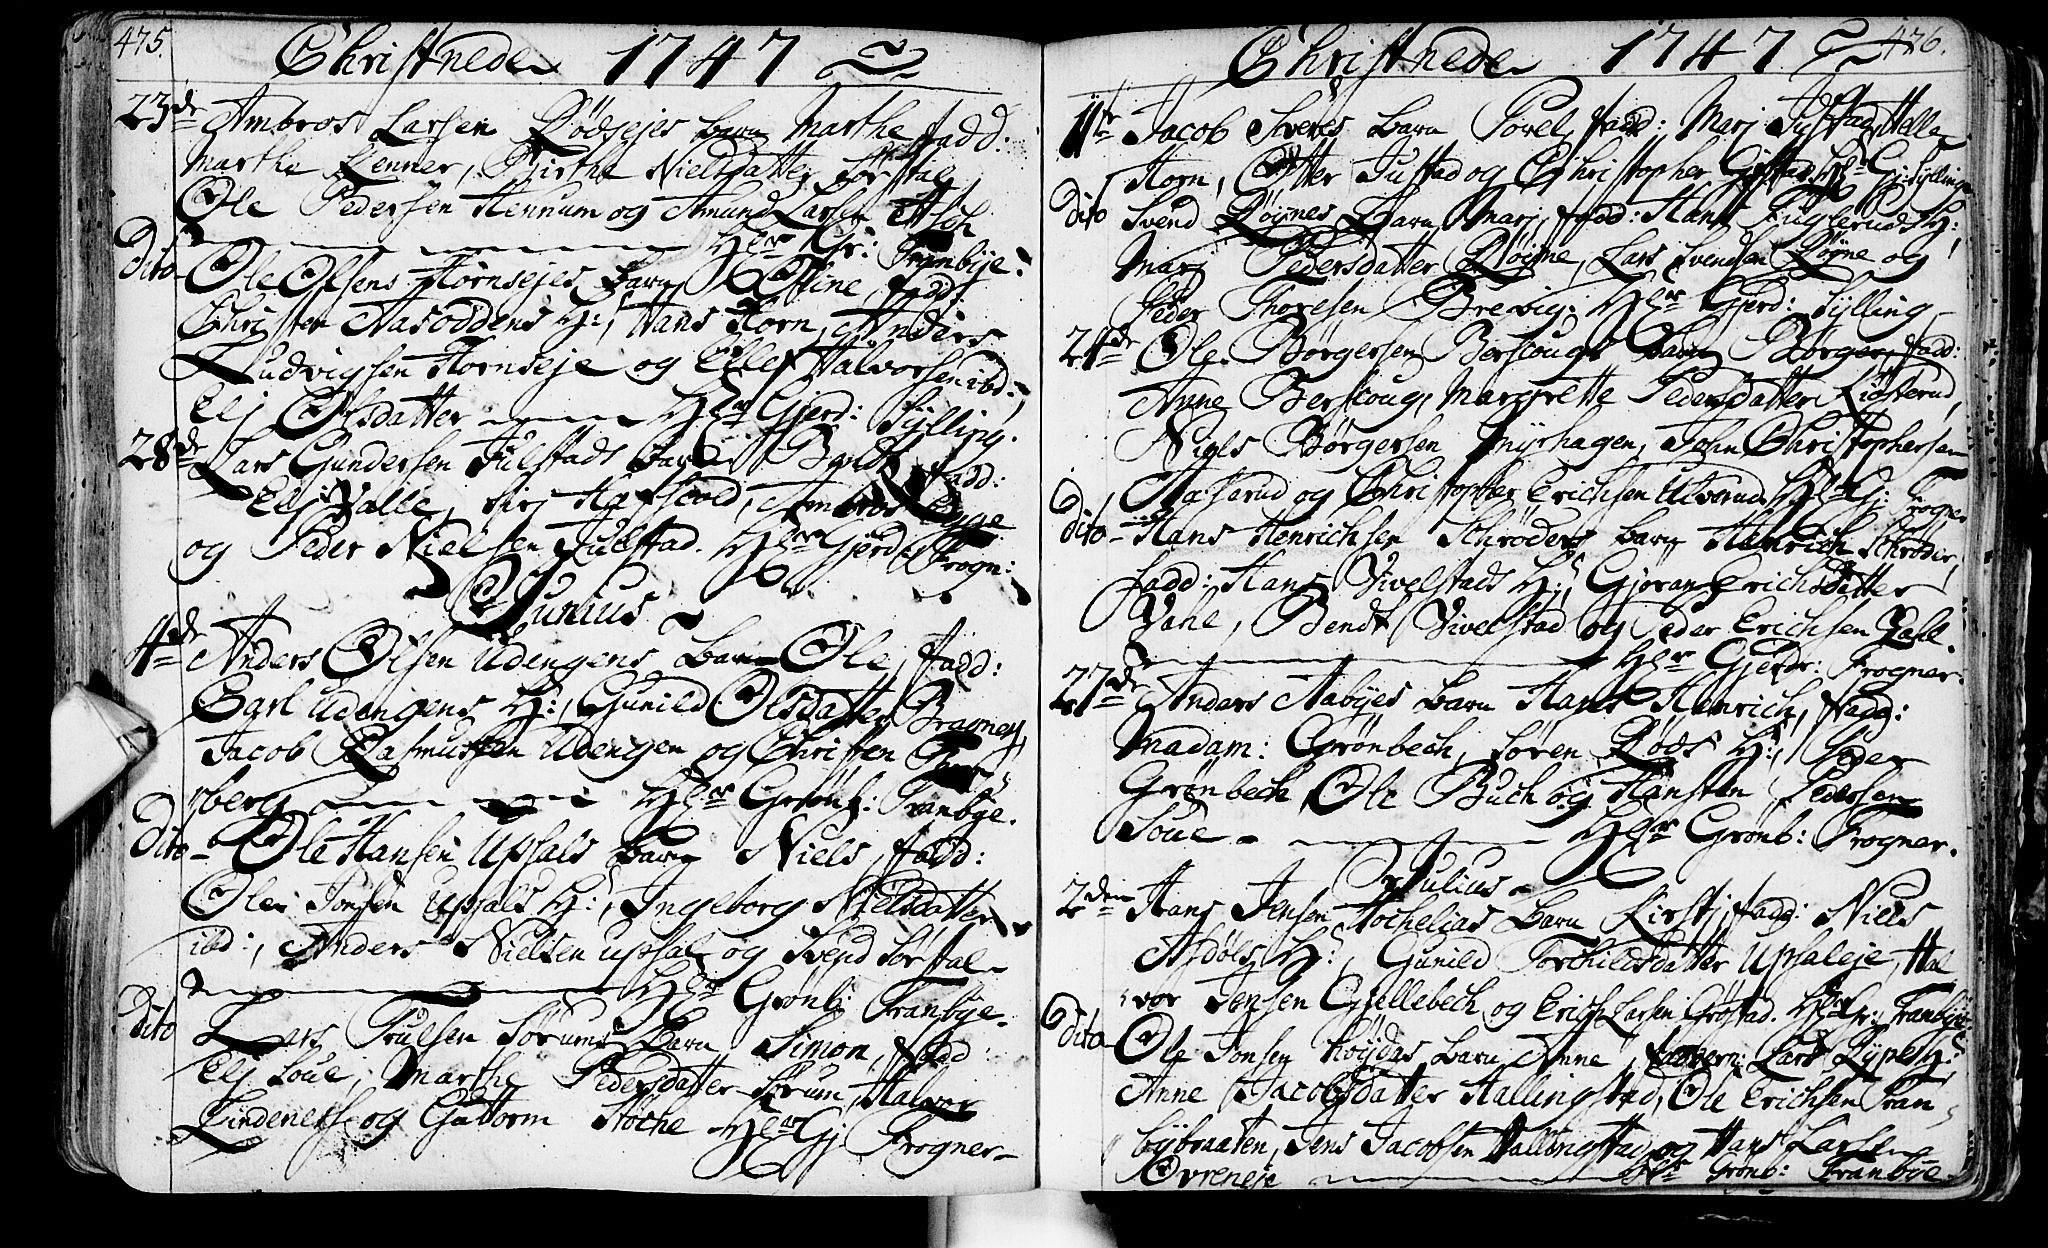 475.
Christnede 1747
23de Ambros Larsen Rødsejes barn Marthe, fadd:
Marthe Lenner, Birthe Nielsdatter Sørsdal,
Ole Pedersen Hennum og Amund Larsen
Hr Gr: Tranbye.
Dito Ole Olsens Hornsejes barn Stine, fadd:
Christen Nasoddens H:, Hans Horn, Anders
Ludvigsen Hornseje og Ellef Halvorsen ibd:,
Elj Olsdatter Hr Gjerd: Sylling.
28de Lars Gundersen Julstads barn fadd:
Elj Valle, Ambros
og Peder Nielsen Julstad. Hr Gjerd: Frogn:
Junius
4de Anders Olsen Udengens barn Ole, fadd:
Carl Udengens H:, Gunild Olsdatter Bragnes,
Jacob Rasmussen Udengen og Christen
berg Hr Grönb: Tranbye.
Dito Ole Hansen Upsals barn Niels, fadd:
Ole Jonsen Upsals H:, Ingeborg Nielsdatter
ibd:, Anders Nielsen Upsal og Svend Sørsdal
Hr Grönb: Tranbye.
Dito Lars Truelsen Sørums barn Simon, fadd:
Elj Soue, Marthe Pedersdatter Sørum, Halvor
Lindenes og Guttorm Stoche Hr Gj Frogner
476.
Christnede 1747
11te Jacob barn Povel, fadd: Marj Justad, Helle
Horn, Otter Justad og Christopher Gistad. Hr Gj: Sylling
Dito Svend Röynes barn Marj, fadd: Hans Fuglerud H:,
Marj Pedersdatter Röyne, Lars Svendsen Röyne og
Peder Thoresen Brevig: Hr Gjerd: Sylling
24de Ole Börgersen Berscougs barn Börger, fadd:
Anne Berscoug, Margrette Pedersdatter Kiösterud,
Niels Börgersen Myrhagen, John Christophersen
Haserud og Christopher Erichsen Ulverud. Hr G: Frogner
Dito Hans Henrichsen Schröders barn Henrich Schröder,
fadd: Hans Vivelstads H:, Gjöran Erichsdatter
Vahl, Bendt Vivelstad og Peder Erichsen Vahl.
Hr Gjerdr: Frogner.
27de Anders Aabyes barn Hans Henrich, fadd:
Madam: Grönbech, Sören Röds H:, Peder
Grönbech, Ole Buch og Hansten Pedersen
Soue Hr Grönb: Frogner.
Julius
2den Hans Jensen barn Kirstj, fadd: Niels
Asdöls H:, Gunild Torchildsdatter Upsaleje, Hal
vor Jensen Gjellebech og Erich Larsen Gröstad. Hr Gr: Tranbye
Dito Ole Jonsen Höydas barn Anne, faddern: Lars Rypes H:,
Anne Jacobsdatter Hallingstad, Ole Erichsen Tran
bybraaten, Jens Jacobsen Hallingstad og Hans Larsen
Ovreneje Hr Grönb: Tranbye